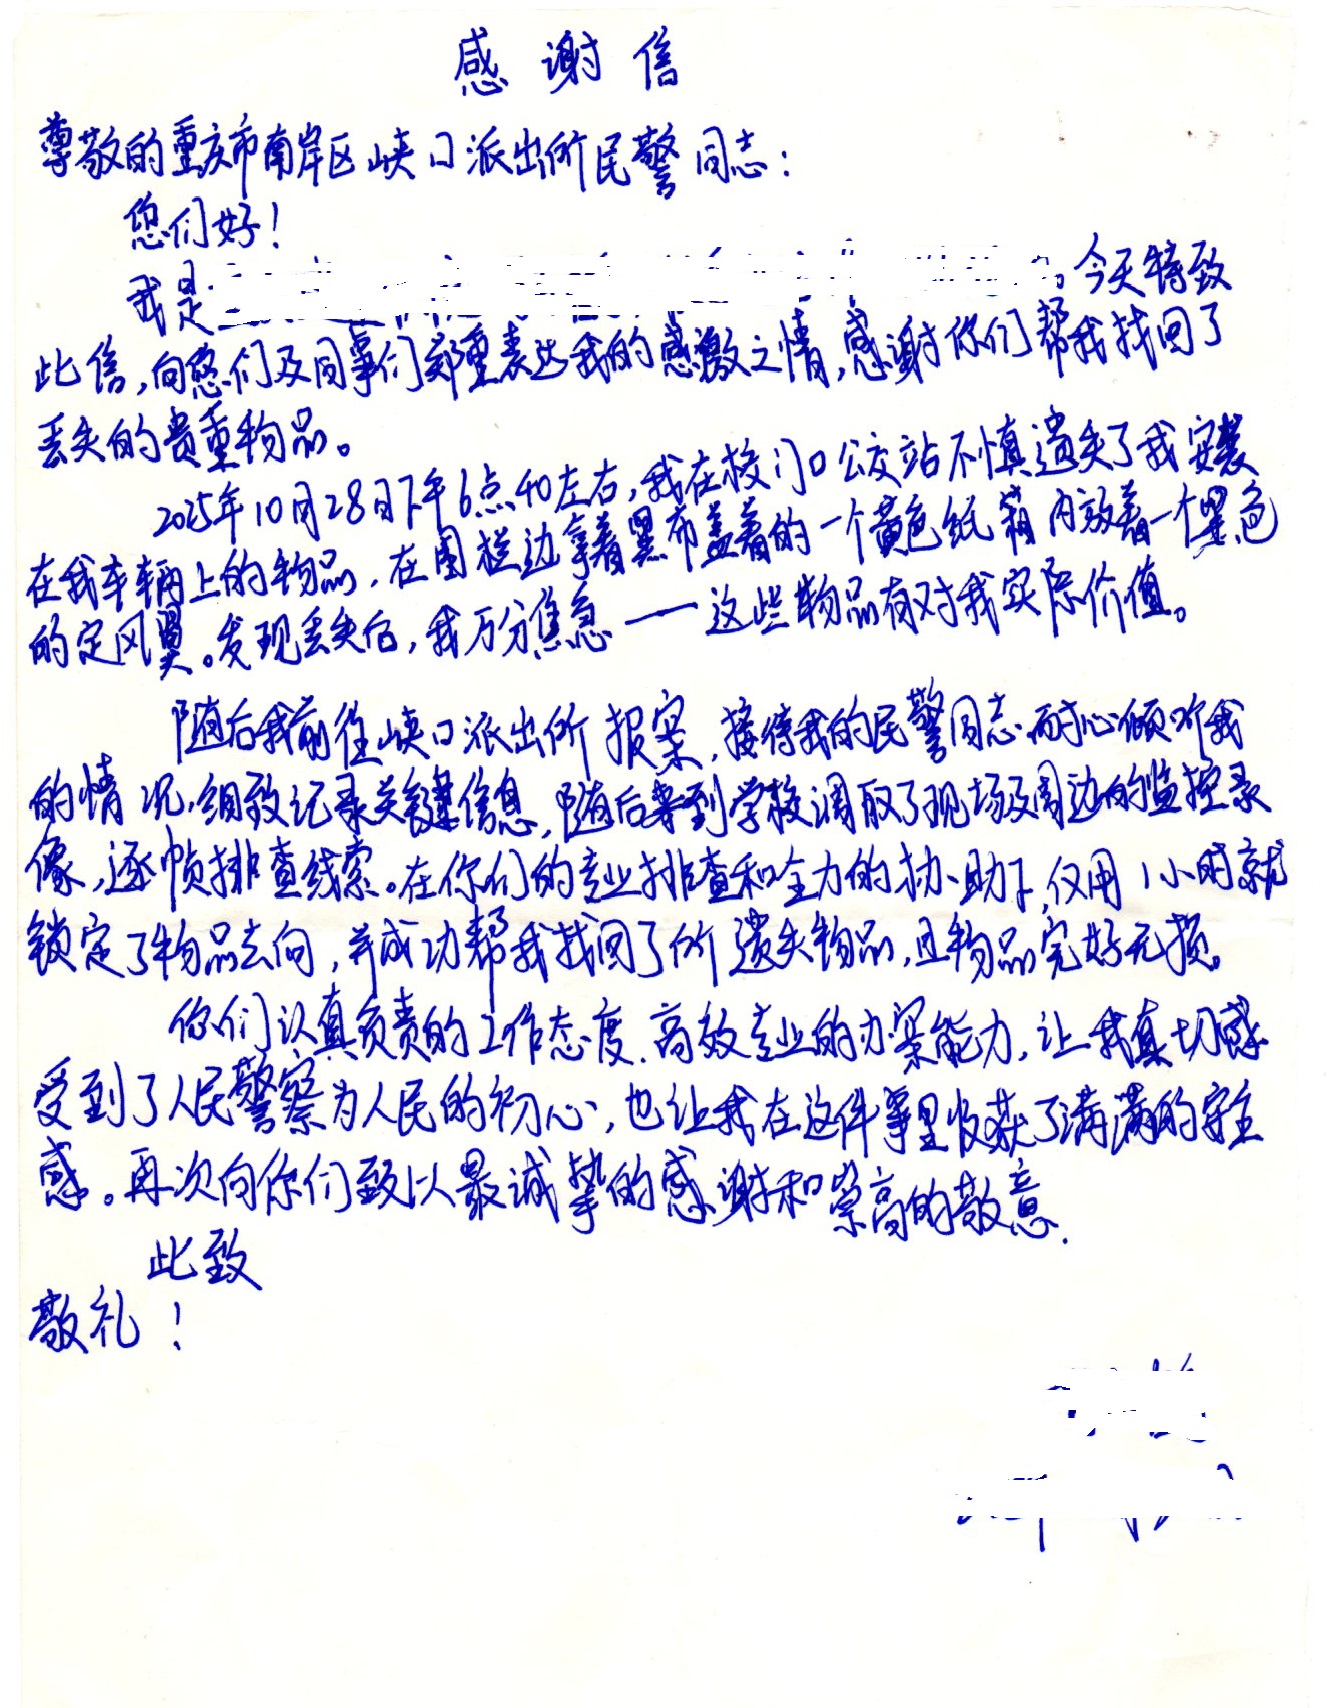 感谢信
尊敬的重庆市南岸区峡口派出所民警同志：
您们好！
我是 。今天特致
此信，向您们及同事们郑重表达我的感激之情，感谢你们帮我找回了
丢失的贵重物品。
2025年10月28日下午6点40左右，我在校门口公交站不慎遗失了我安装
在我车辆上的物品，在围栏边拿着黑布盖着的一个黄色纸箱内放着一个黑色
的定风翼。发现丢失后，我万分焦急——这些物品有对我实际价值。
随后我前往峡口派出所报案，接待我的民警同志耐心倾听我
的情况，细致记录关键信息，随后来到学校调取了现场及周边的监控录
像，逐帧排查线索。在你们的专业排查和全力的协助下，仅用1小时就
锁定了物品去向，并成功帮我找回了所遗失物品，且物品完好无损。
你们认真负责的工作态度、高效专业的办案能力，让我真切感
受到了人民警察为人民的初心，也让我在这件事里收获了满满的安全
感。再次向你们致以最诚挚的感谢和崇高的敬意.
此致
敬礼！